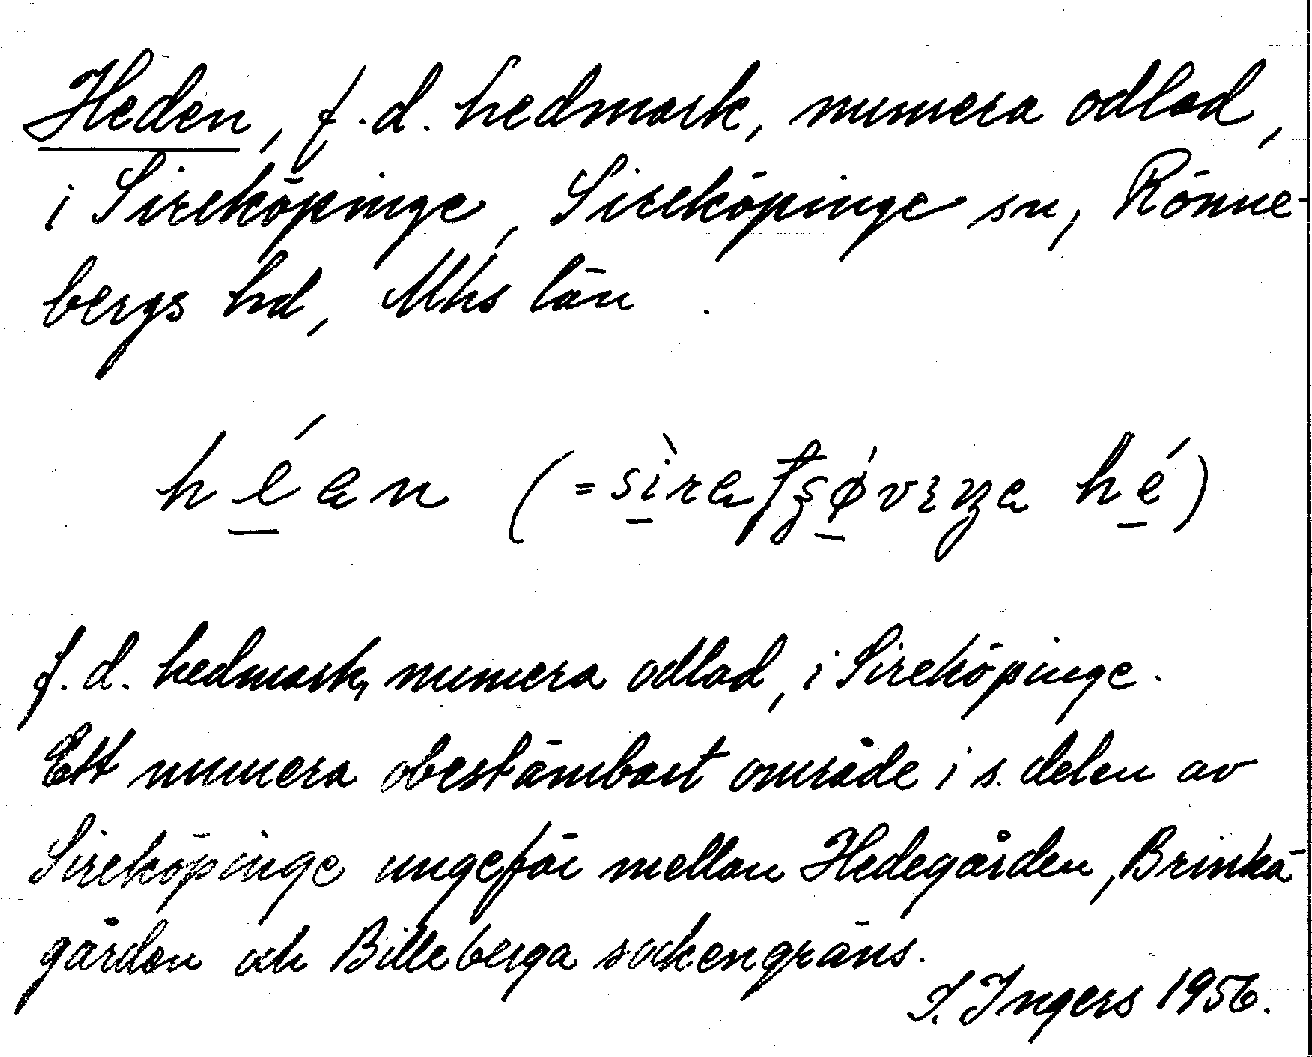 Heden, f.d. hedmark, numera odlad,
i Sireköpinge, Sireköpinge sn, Rönne-
bergs hd, Mhs län
héan (= sìra hé)
f.d. hedmark, numera odlad, i Sireköpinge.
Ett numera obestämbart område i s. delen av
Sireköpinge ungefär mellan Hedegården, Brinka-
gården och Billeberga sockengräns.
I. Ingers 1956.